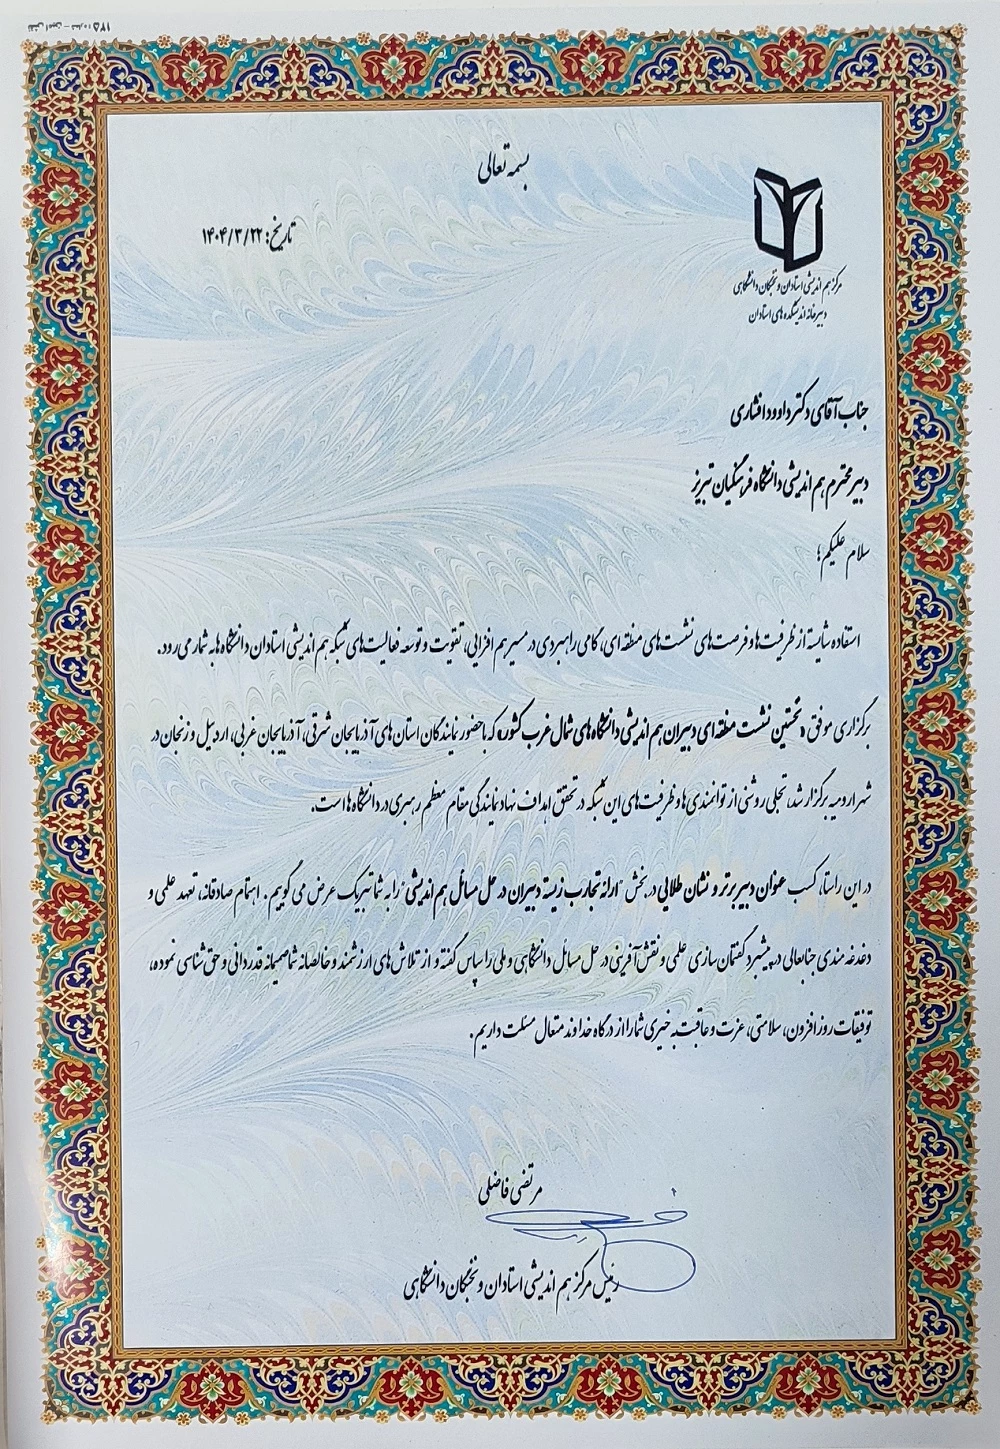 بسمه تعالی
تاریخ: ۱۴۰۴/۳/۲۲
مرکز هم اندیشی استادان و نخبگان دانشگاهی
دبیرخانه اندیشکده های استادان
جناب آقای دکتر داوود افشاری
دبیر محترم هم اندیشی دانشگاه فرهنگیان تبریز
سلام علیکم؛
استفاده شایسته از ظرفیت‌ها و فرصت‌های نشست‌های منطقه ای، گامی راهبردی در مسیر هم افزایی، تقویت و توسعه فعالیت‌های شبکه هم اندیشی استادان دانشگاه ها به شمار می رود.
برگزاری موفق «نخستین نشست منطقه ای دبیران هم اندیشی دانشگاه های شمال غرب کشور» که با حضور نمایندگان استان های آذربایجان شرقی، آذربایجان غربی، اردبیل و زنجان در
شهر ارومیه برگزار شد، تجلی روشنی از توانمندی ها و ظرفیت‌های این شبکه در تحقق اهداف نهاد نمایندگی مقام معظم رهبری در دانشگاه ها است.
در این راستا، کسب عنوان دبیر برتر و نشان طلایی در بخش "ارائه تجارب زیسته دبیران در حل مسائل هم اندیشی" را به شما تبریک عرض می گوییم. اهتمام صادقانه، تعهد علمی و
دغدغه مندی جنابعالی در پیشبرد گفتمان سازی علمی و نقش آفرینی در حل مسائل دانشگاهی و ملی را سپاس گفته و از تلاش های ارزشمند و خالصانه شما صمیمانه قدردانی و حق شناسی نموده،
توفیقات روزافزون، سلامتی، عزت و عاقبت به خیری شما را از درگاه خداوند متعال مسئلت داریم.
مرتضی فاضلی
رئیس مرکز هم اندیشی استادان و نخبگان دانشگاهی